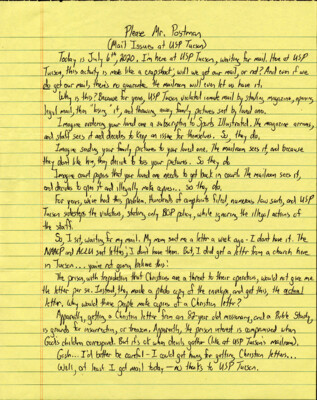 Please Mr. Postman
(Mail Issues at USP Tucson)
Today is July 6th, 2020. I'm here at USP Tucson, waiting for mail. Here at USP
Tucson, this activity is more like a crapshoot; will we get our mail, or not? And even if we
do get our mail, there's no guarantee the mailroom will even let us have it.
Why is this? Because for years, USP Tucson violated inmate mail by stealing magazines, opening
legal mail, then "losing" it, and throwing away family pictures sent by loved ones.
Imagine ordering your loved one a subscription to Sports Illustrated. The magazine arrives,
and staff sees it and decides to keep an issue for themselves. So, they do.
Imagine sending your family pictures to your loved one. The mailroom sees it, and because
they don't like him, they decide to toss your pictures. So they do.
Imagine court papers that your loved one needs to get back in court. The mailroom sees it,
and decides to open it and illegally make copies... so they do.
For years, we've had this problem. Hundreds of complaints filed, numerous law suits, and USP
Tucson sidesteps the violations, stating only BOP policy, while ignoring the illegal actions of
the staff.
So, I sit, waiting for my mail. My mom sent me a letter a week ago - I don't have it. The
NAACP and ACLU sent letters, I don't have them. But, I did get a letter from a church here
in Tucson... you're not gonna believe this:
The prison, with trepidation that Christians are a threat to their operation, would not give me
the letter per se. Instead, they made a photo copy of the envelope, and get this, the actual
letter. Why would these people make copies of a Christian letter?
Apparently, getting a Christian letter from an 87-year old missionary, and a Bible Study,
is grounds for insurrection, or treason. Apparently, the prison interest is compromised when
God's children correspond. But it's ok when deviants gather (like at USP Tucson's mailroom).
Gosh... I'd better be careful - I could get hung for getting Christian letters...
Well, at least I got mail today - no thanks to USP Tucson.